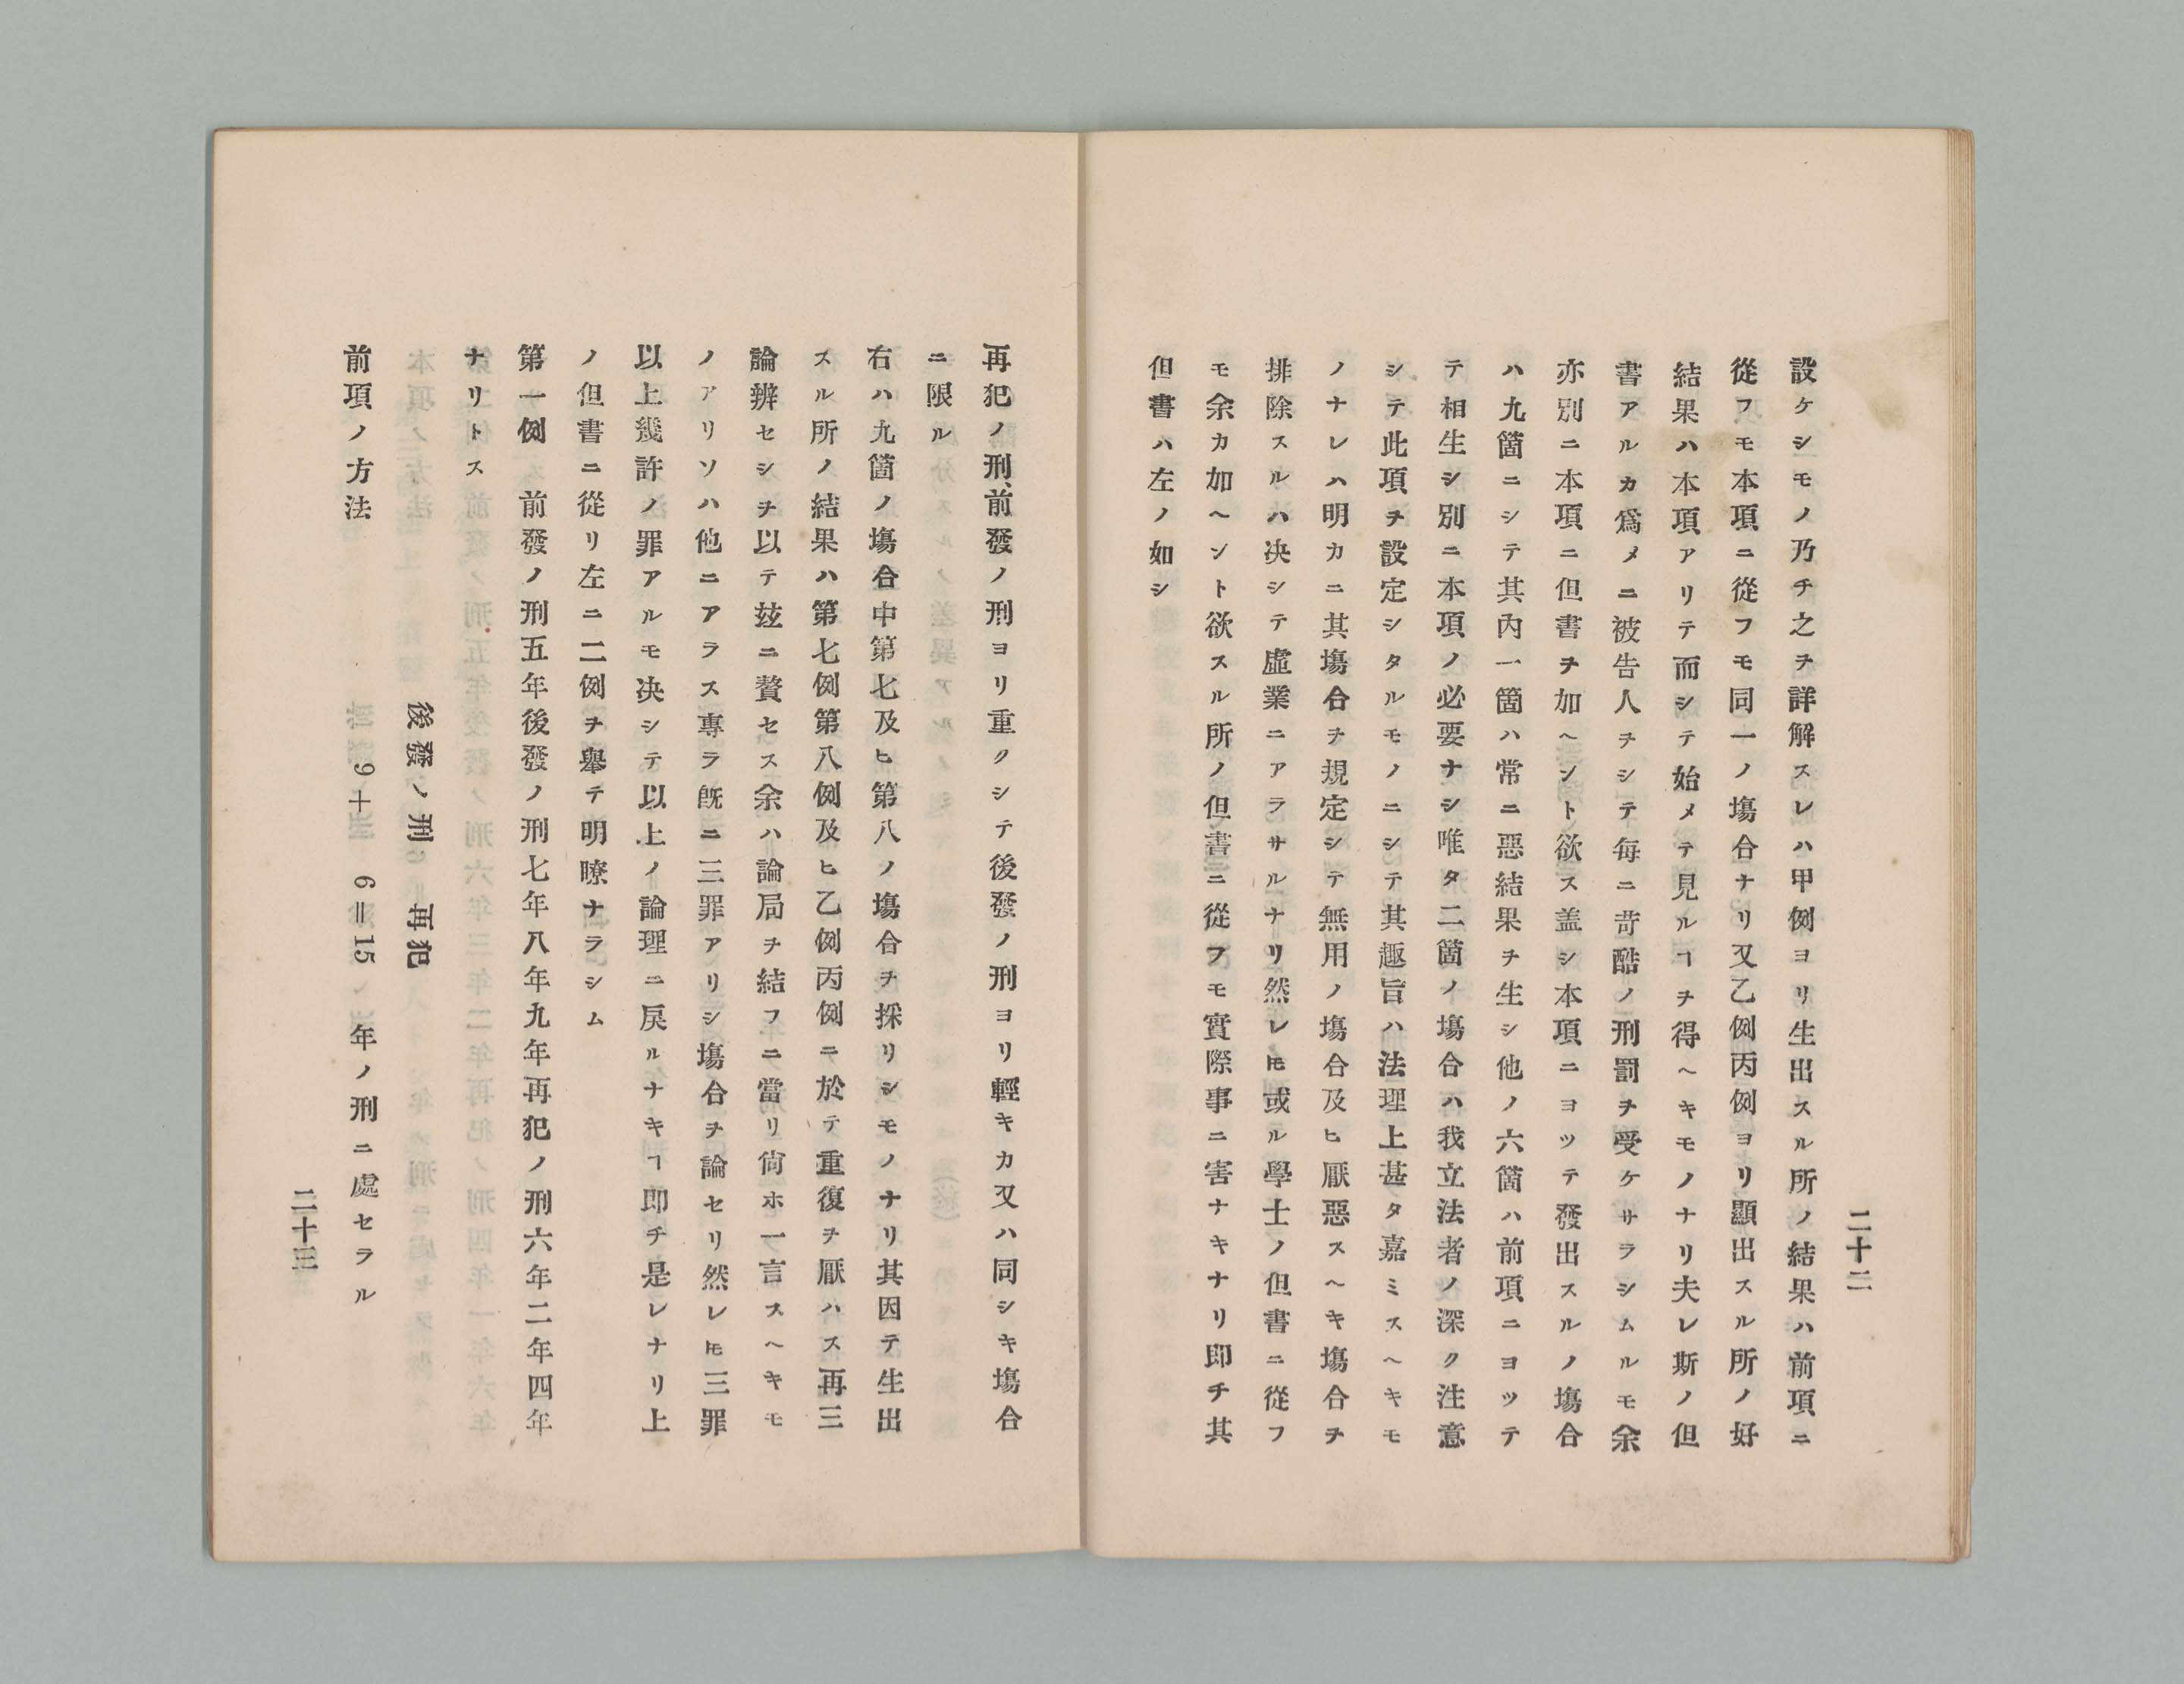 二十二
設ケシモノ乃チ之ヲ詳解スレハ甲例ヨリ生出スル所ノ結果ハ前項ニ
從フモ本項ニ從フモ同一ノ塲合ナリ又乙例丙例ヨリ顯出スル所ノ好
結果ハ本項アリテ而シテ始メテ見ルヿヲ得ヘキモノナリ夫レ斯ノ但
書アルカ爲メニ被告人ヲシテ毎ニ苛酷ノ刑罰ヲ受ケサラシムルモ余
亦別ニ本項ニ但書ヲ加ヘント欲ス盖シ本項ニヨツテ發出スルノ塲合
ハ九箇ニシテ其内一箇ハ常ニ惡結果ヲ生シ他ノ六箇ハ前項ニヨツテ
テ相生シ別ニ本項ノ必要ナシ唯タ二箇ノ塲合ハ我立法者ノ深ク注意
シテ此項ヲ設定シタルモノニシテ其趣旨ハ法理上甚タ嘉ミスヘキモ
ノナレハ明カニ其塲合ヲ規定シテ無用ノ塲合及ヒ厭惡スヘキ塲合ヲ
排除スルハ决シテ虛業ニアラサルナリ然レ𪜈或ル學士ノ但書ニ從フ
モ余カ加ヘント欲スル所ノ但書ニ從フモ實際事ニ害ナキナリ即チ其
但書ハ左ノ如シ
再犯ノ刑、前發ノ刑ヨリ重クシテ後發ノ刑ヨリ輕キカ又ハ同シキ塲合
ニ限ル
右ハ九箇ノ塲合中第七及ヒ第八ノ塲合ヲ採リシモノナリ其因テ生出
スル所ノ結果ハ第七例第八例及ヒ乙例丙例ニ於テ重復ヲ厭ハス再三
論辨セシヲ以テ玆ニ贅セス余ハ論局ヲ結フニ當リ尙ホ一言スヘキモ
ノアリソハ他ニアラス專ラ旣ニ三罪アリシ塲合ヲ論セリ然レ𪜈三罪
以上幾許ノ罪アルモ决シテ以上ノ論理ニ戾ルナキヿ即チ是レナリ上
ノ但書ニ從リ左ニ二例ヲ擧テ明瞭ナラシム
第一例　前發ノ刑五年後發ノ刑七年八年九年再犯ノ刑六年二年四年
ナリトス
後發ノ刑　再犯
前項ノ方法　9＋　6＝15　年ノ刑ニ處セラル
二十三